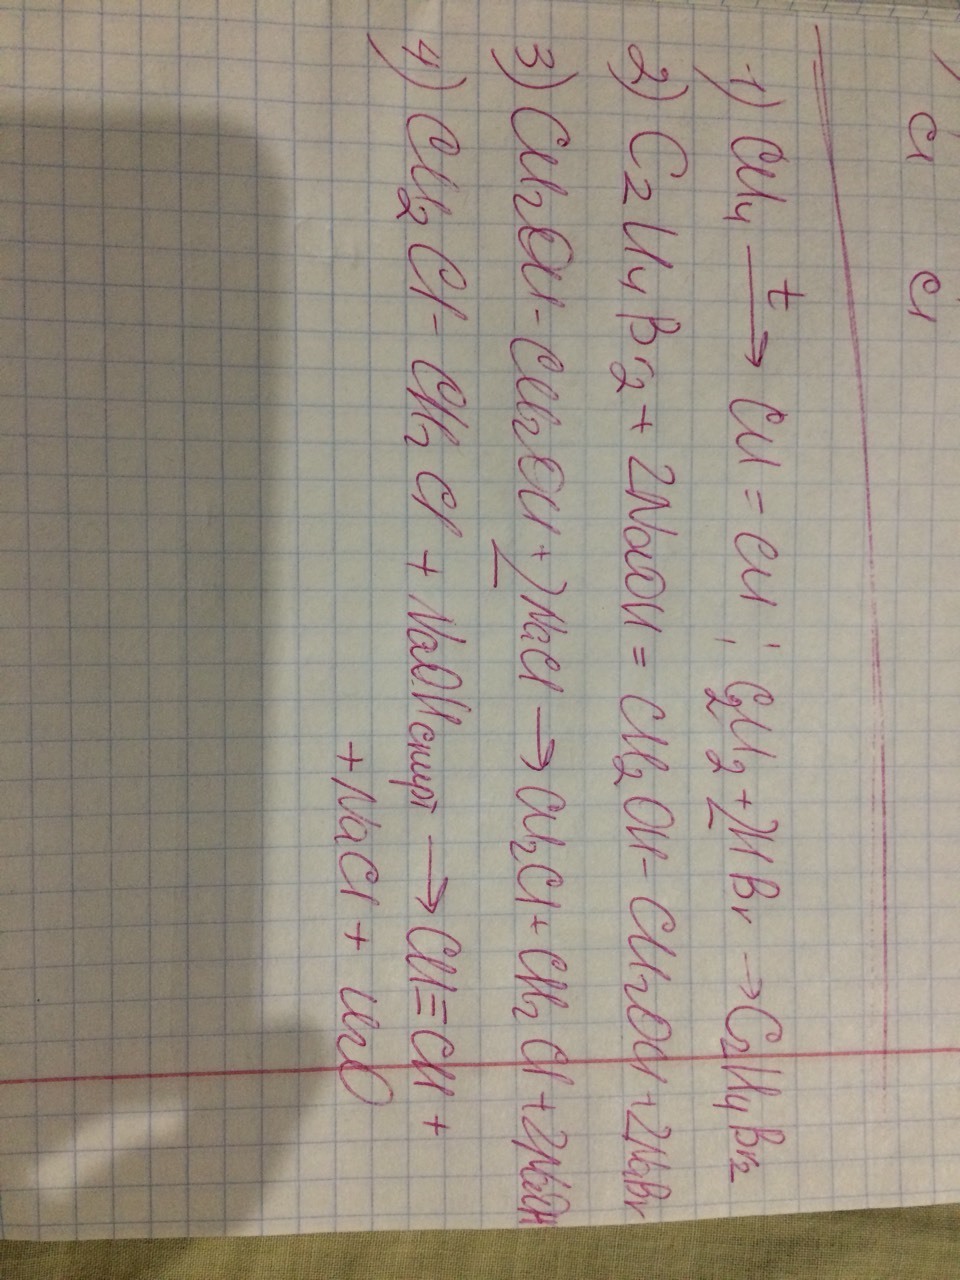 Cl Cl
1) CH4 t→ CH=CH; C2H2+2HBr→C2H4Br2
2) C2H4Br2+2NaOH=CH2OH-CH2OH+2NaBr
3) CH2OH-CH2OH+2NaCl→CH2Cl+CH2Cl+2NaOH
4) CH2Cl-CH2Cl+NaOHспирт→CH≡CH+
+NaCl+H2O